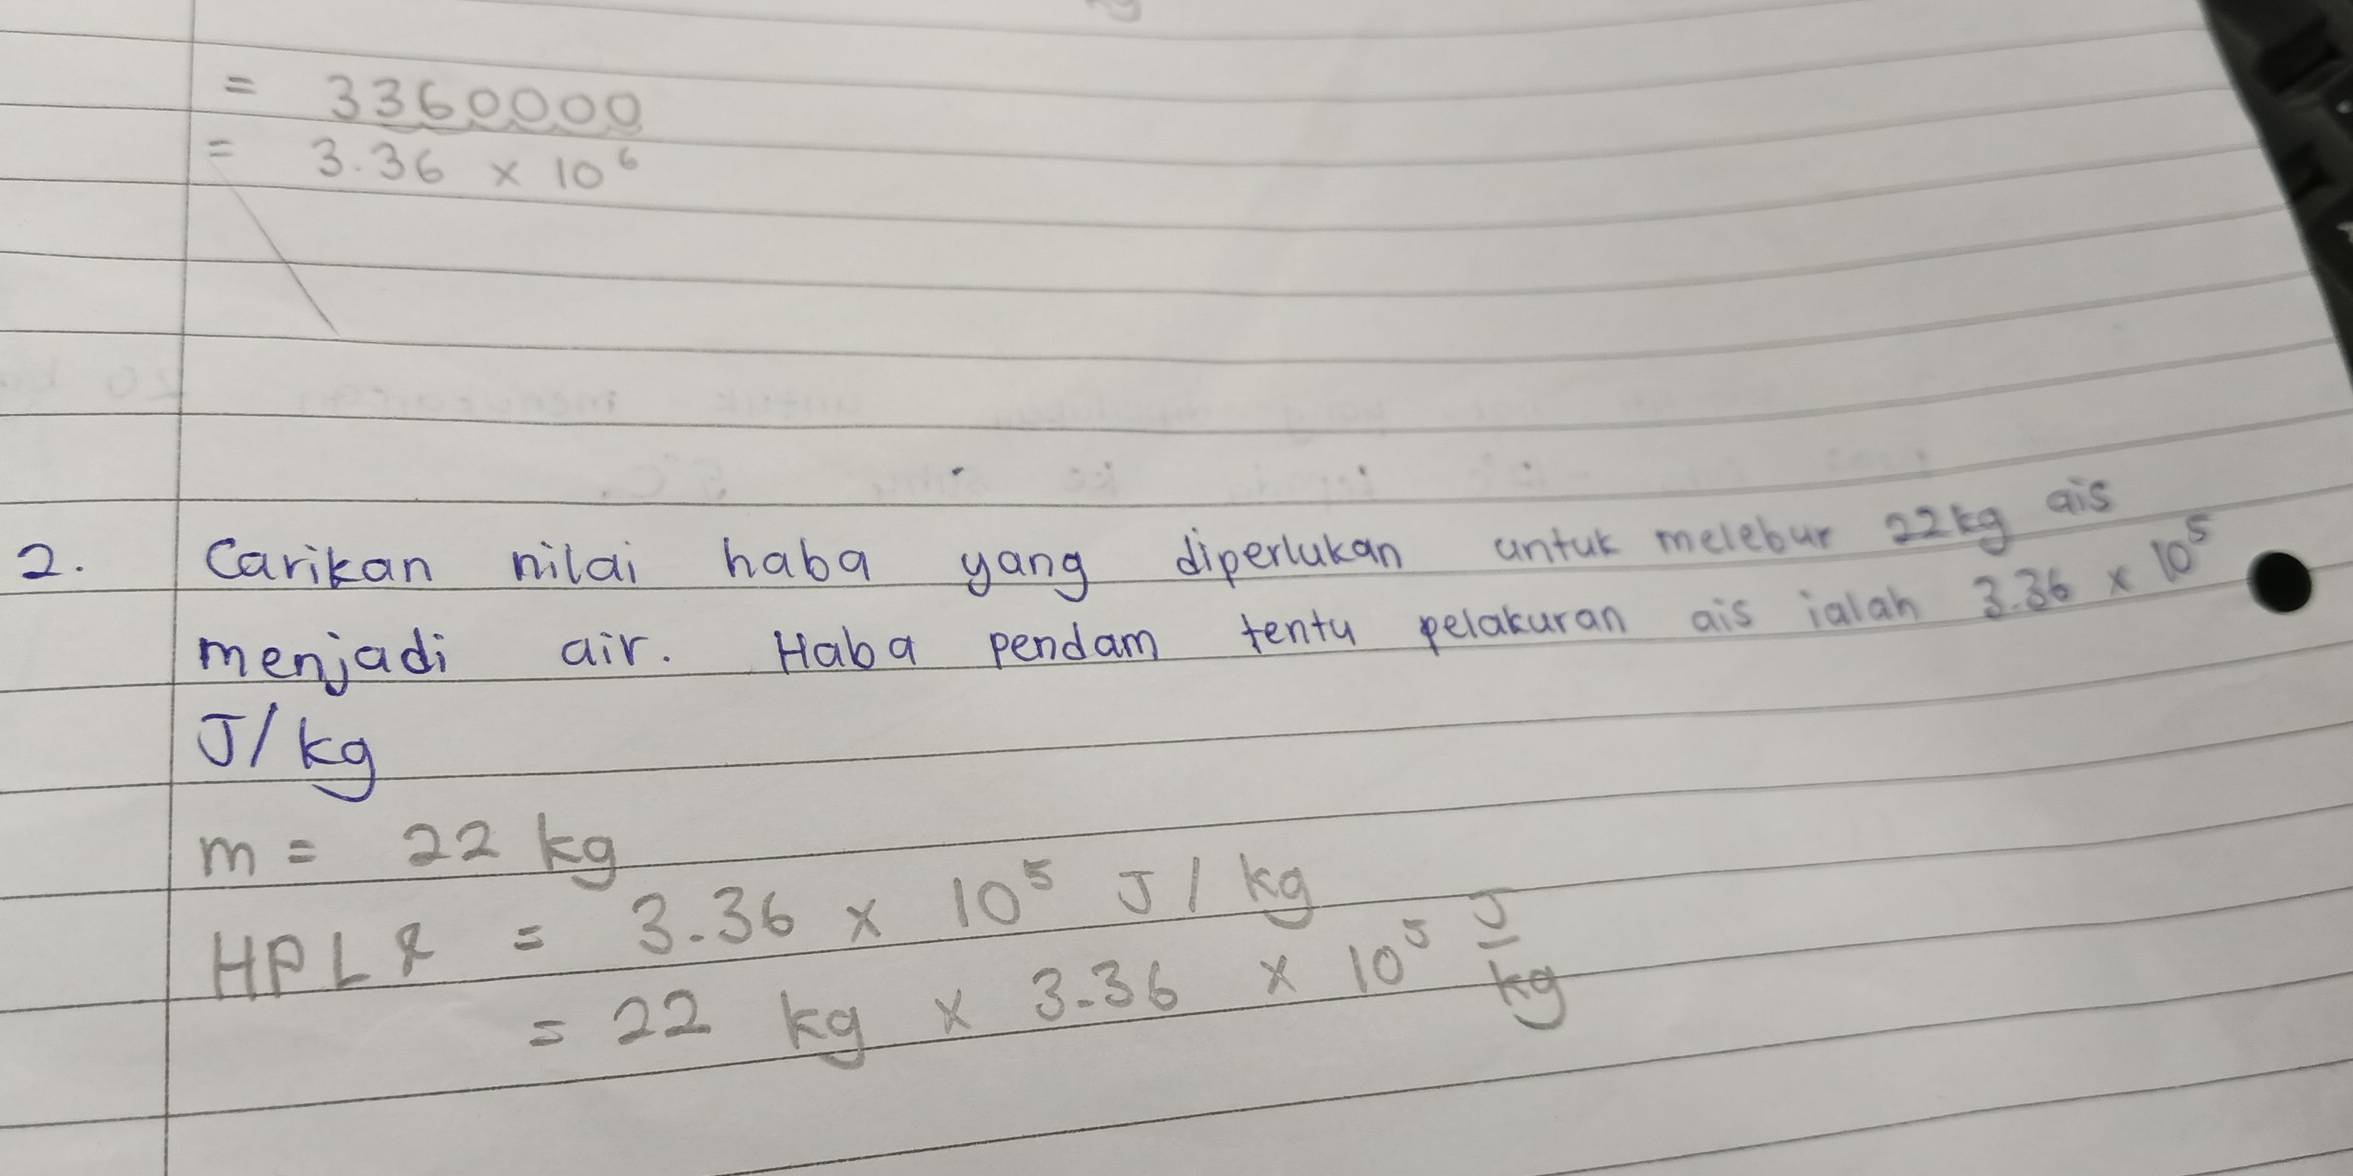 = 3360000
= 3.36 × 10⁶
2. Carikan nilai haba yang diperlukan untuk melebur 22kg ais
menjadi air. Haba pendam tentu pelakuran ais ialah 3.36 × 10⁵
J/kg
m = 22 kg
HPL = 3.36 × 10⁵ J/kg
= 22 kg × 3.36 × 10⁵ J/kg